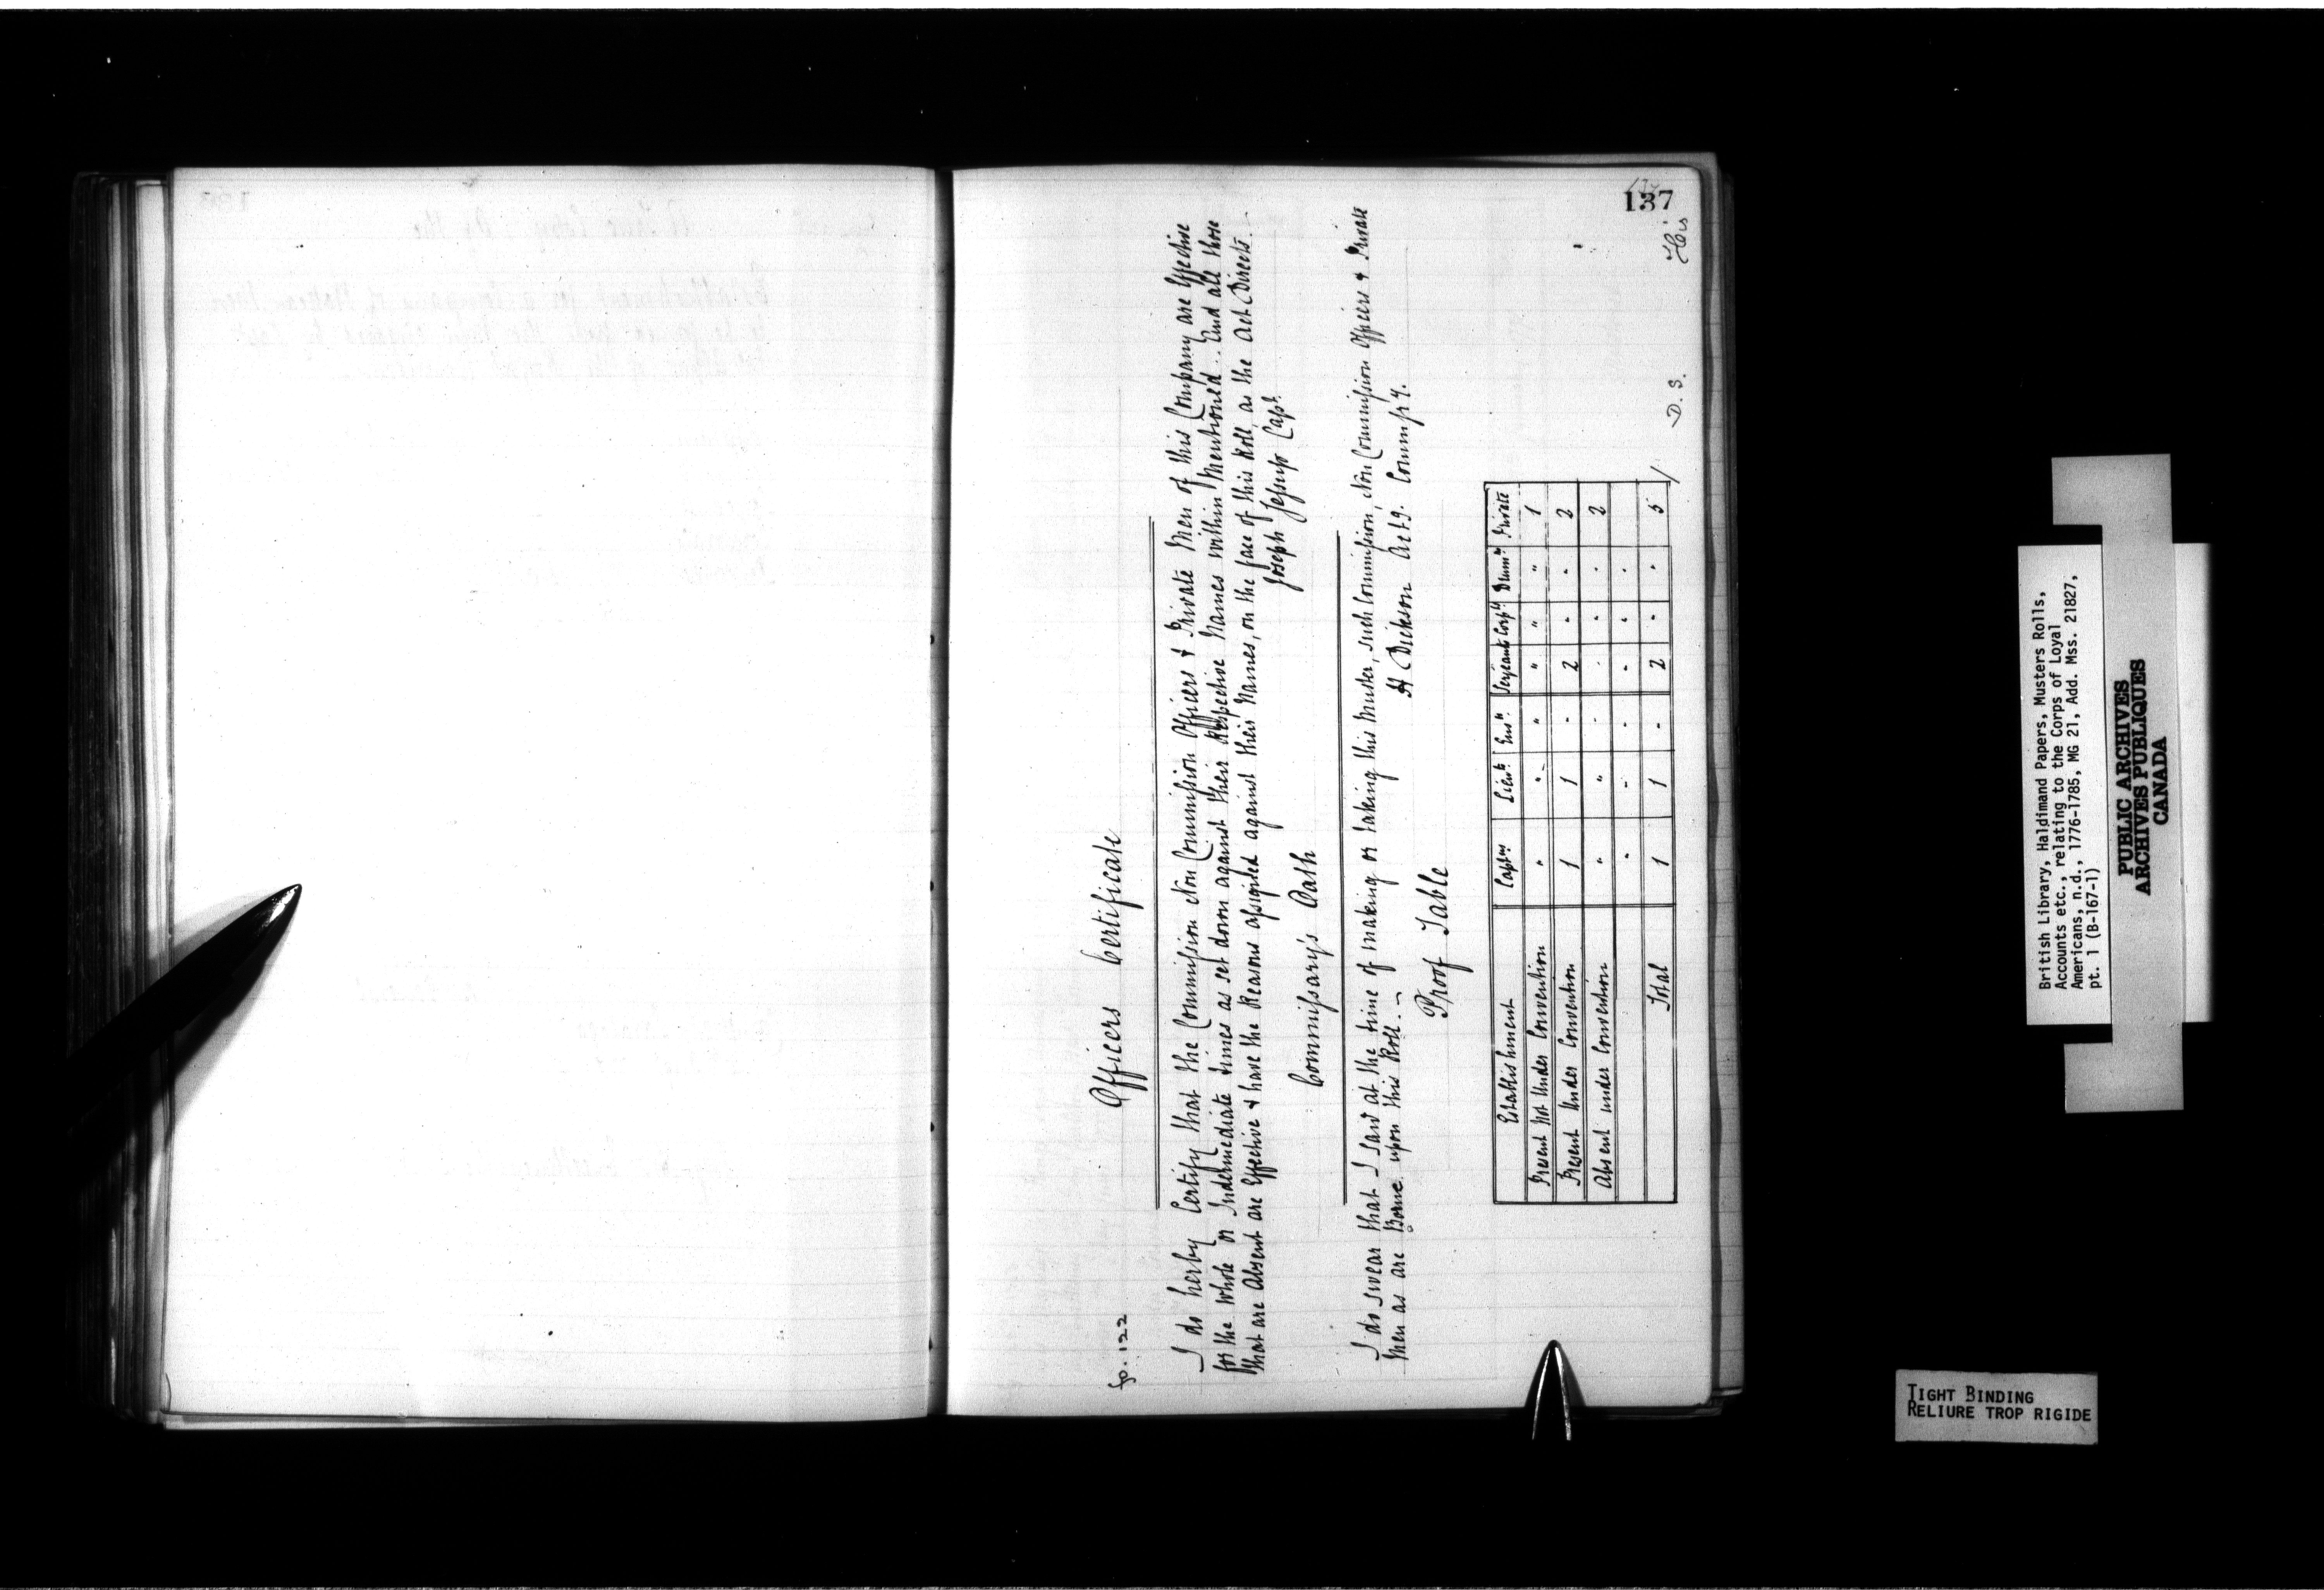 137
fo. 122
Officers Certificate
I do herby Certify that the Commission Non Commission Officers & Private Men of this Company are Effective
for the whole or Indermediate times as set down against their Respective Names within Mentioned. And all those
that are Absent are Effective & have the Reasons assigned against their Names, on the face of this Roll, as the Act Directs.
Joseph Jessup Capt.
Commissary's Oath
I do swear that I saw at the time of making or taking this Muster, such Commission, Non Commission Officers & Private
Men as are Borne upon this Roll.
H Dickson Actg. Commsry.
Proof Table
Establishment Captns Lieuts Enss. Serjeants Corpls Drumrs Private
Present Not Under Convention " " " " " " 1
Present Under Convention 1 1 - 2 - - 2
Absent under Convention " " - - - - 2
Total 1 1 - 2 - - 5
D. S.
His
British Library, Haldimand Papers, Musters Rolls,
Accounts etc., relating to the Corps of Loyal
Americans, n.d., 1776-1785, MG 21, Add. Mss. 21827,
pt. 1 (B-167-1)
PUBLIC ARCHIVES
ARCHIVES PUBLIQUES
CANADA
TIGHT BINDING
RELIURE TROP RIGIDE